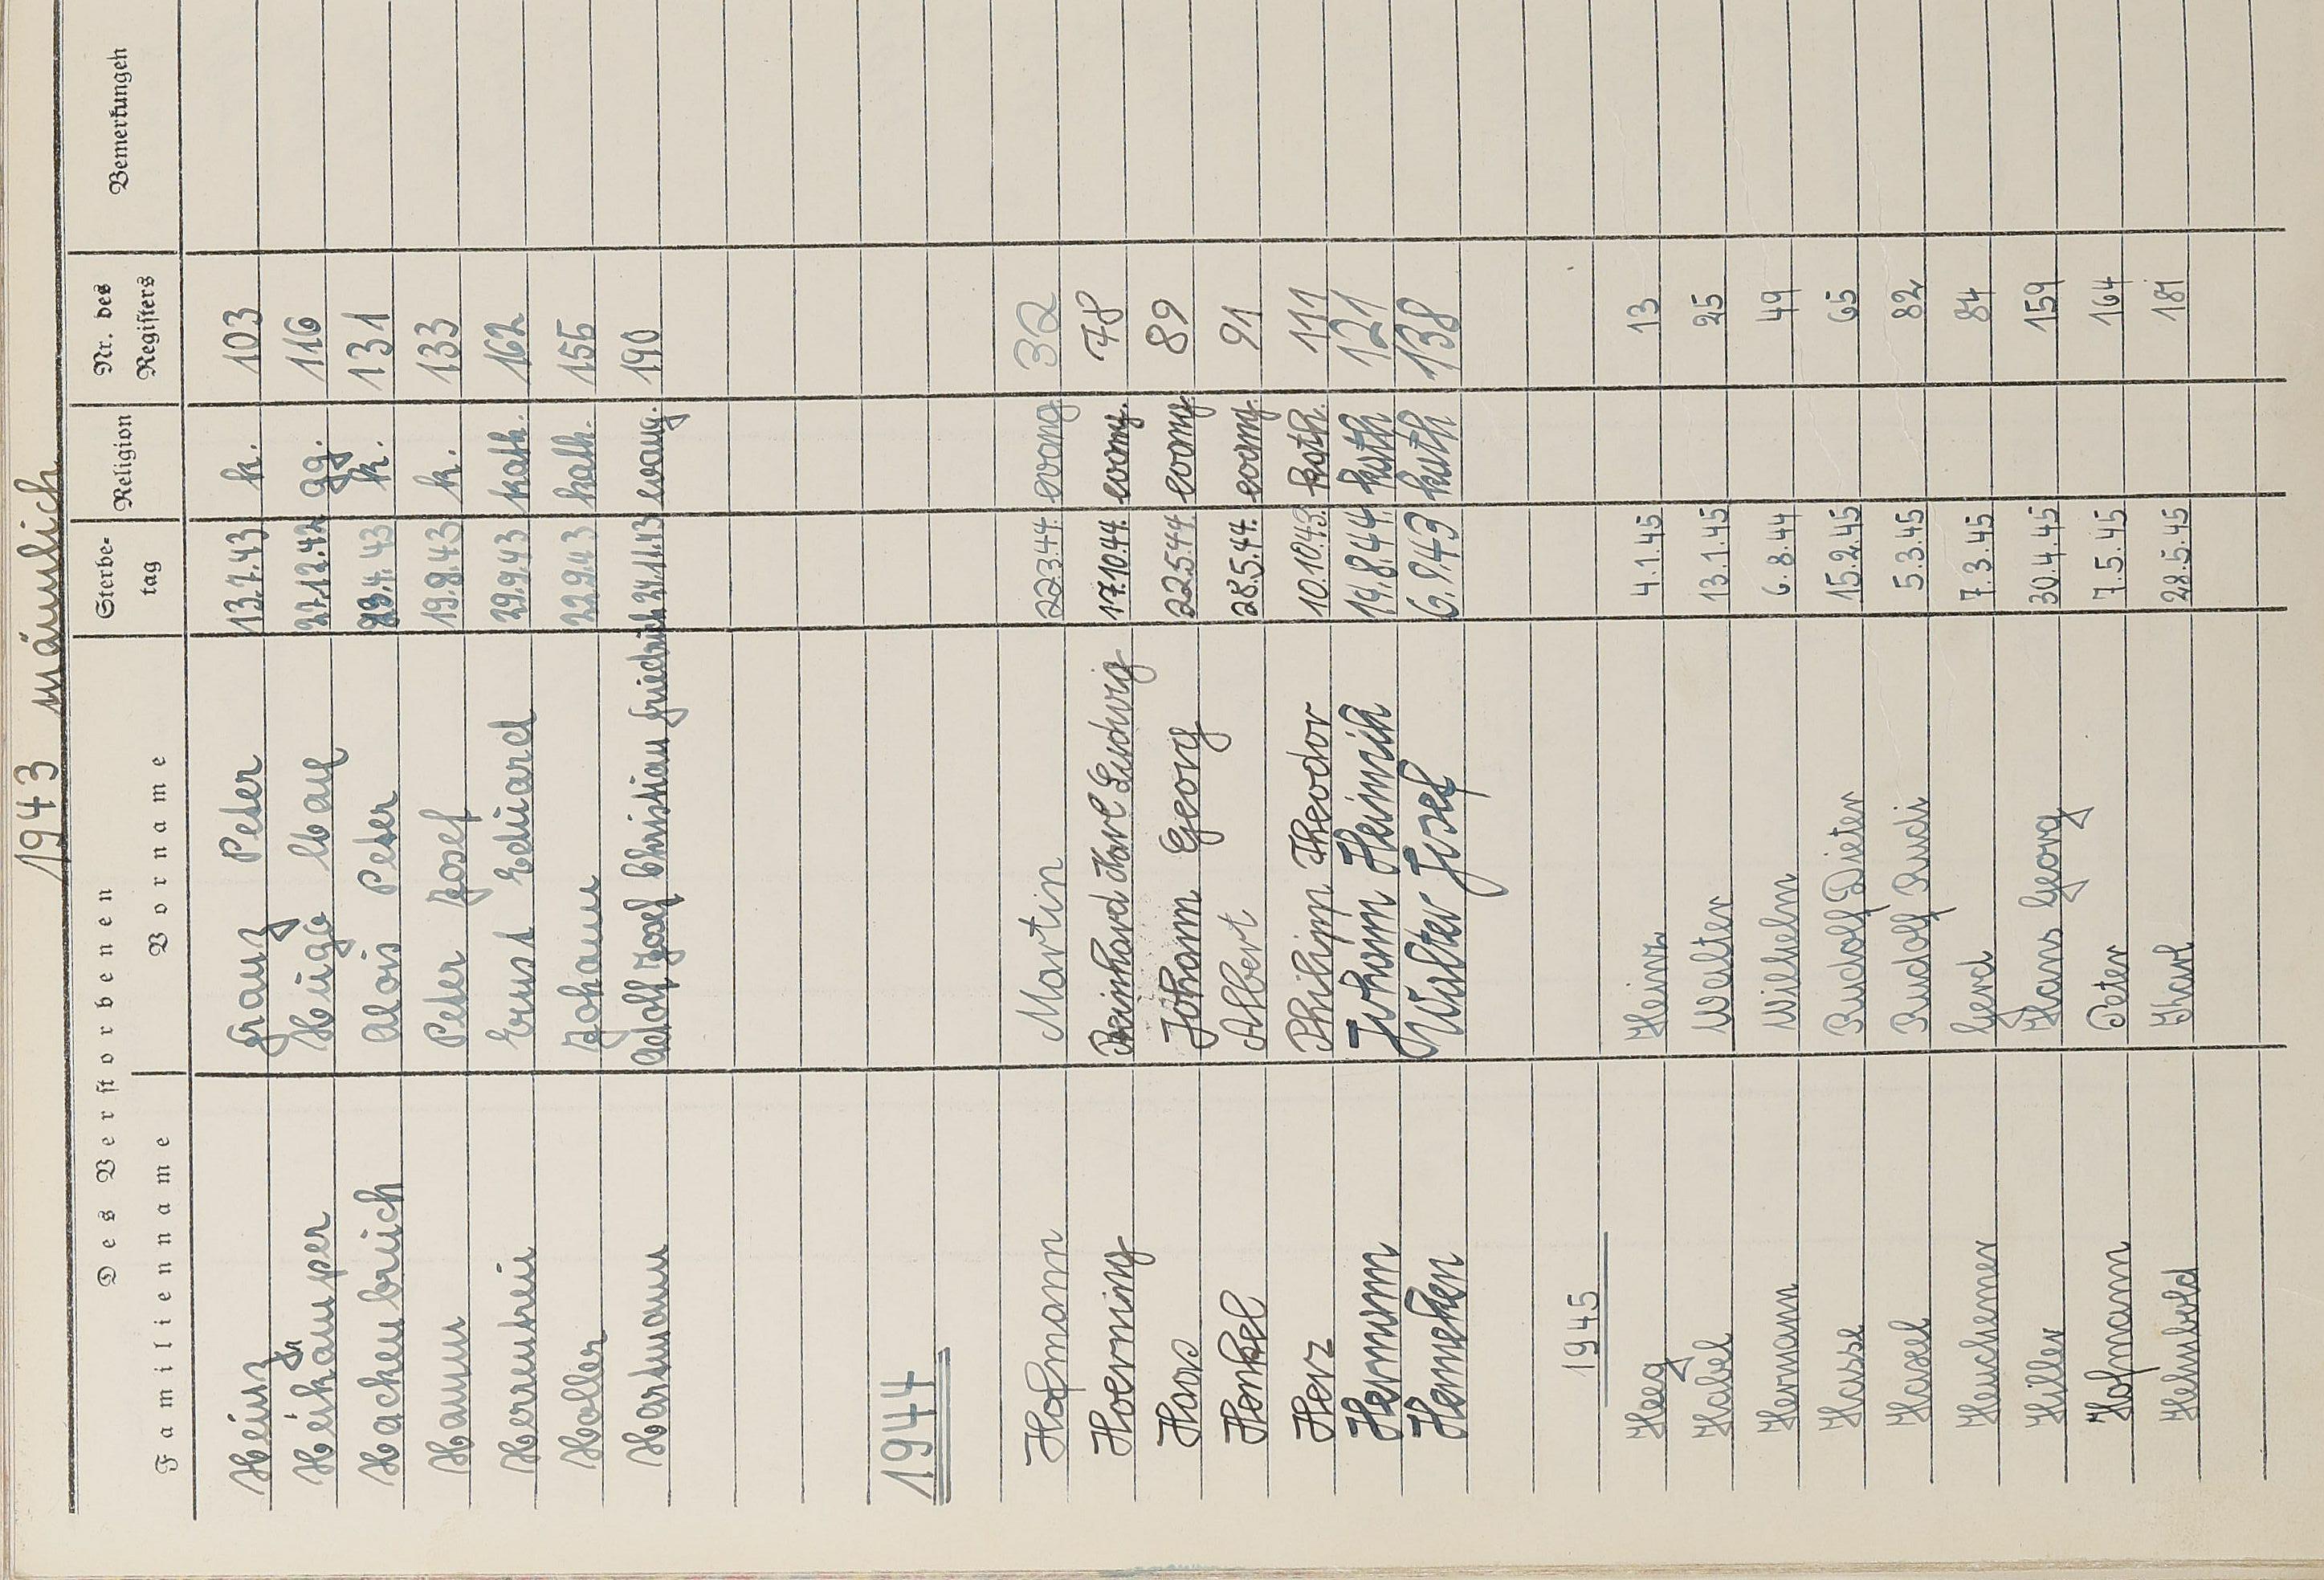 1943 männlich
Des Verstorbenen Sterbe- Religion Nr. des Bemerkungen
Familienname Vorname tag Registers
Heinz Franz Peter 13.7.43 k. 103
Heikämper Hugo Max 27.12.42 gg. 116
Hachenbruch Alois Peter 29.4.43 k. 131
Hamm Peter Josef 19.8.43 k. 133
Herrentreu Ernst Eduard 29.9.43 kath. 162
Holler Johann 22.9.43 kath. 155
Hartmann Adolf Josef Christian Friedrich 24.11.43 evang. 190
1944
Hofmann Martin 22.3.44. evang 32
Hoerning Reinhard Karl Ludwig 17.10.44. evang. 78
Haas Johann Georg 22.5.44. evang 89
Henkel Albert 28.5.44. evang. 91
Herz Philipp Theodor 10.10.43. kath. 111
Hermann Johann Heinrich 14.8.44. kath 121
Hemeken Walter Josef 6.9.43 kath 138
1945
Heeg Heinz 4.1.45 13
Habel Walter 13.1.45 25
Hermann Wilhelm 6.8.44 49
Hasse Rudolf Dieter 15.2.45 65
Hasel Rudolf Rudi 5.3.45 82
Heuchemer Gerd 7.3.45 84
Hiller Hans Georg 30.4.45 159
Hofmann Peter 7.5.45 164
Helmbold Karl 28.5.45 181